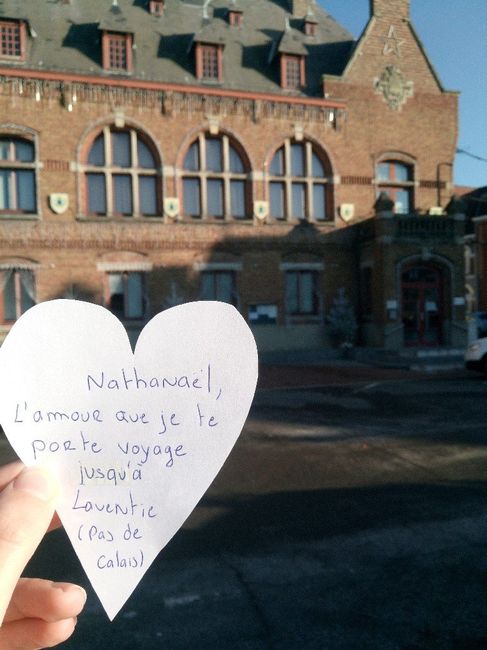 Nathanaël,
L'amour que je te
porte voyage
jusqu'à
Laventie
(Pas de
Calais)